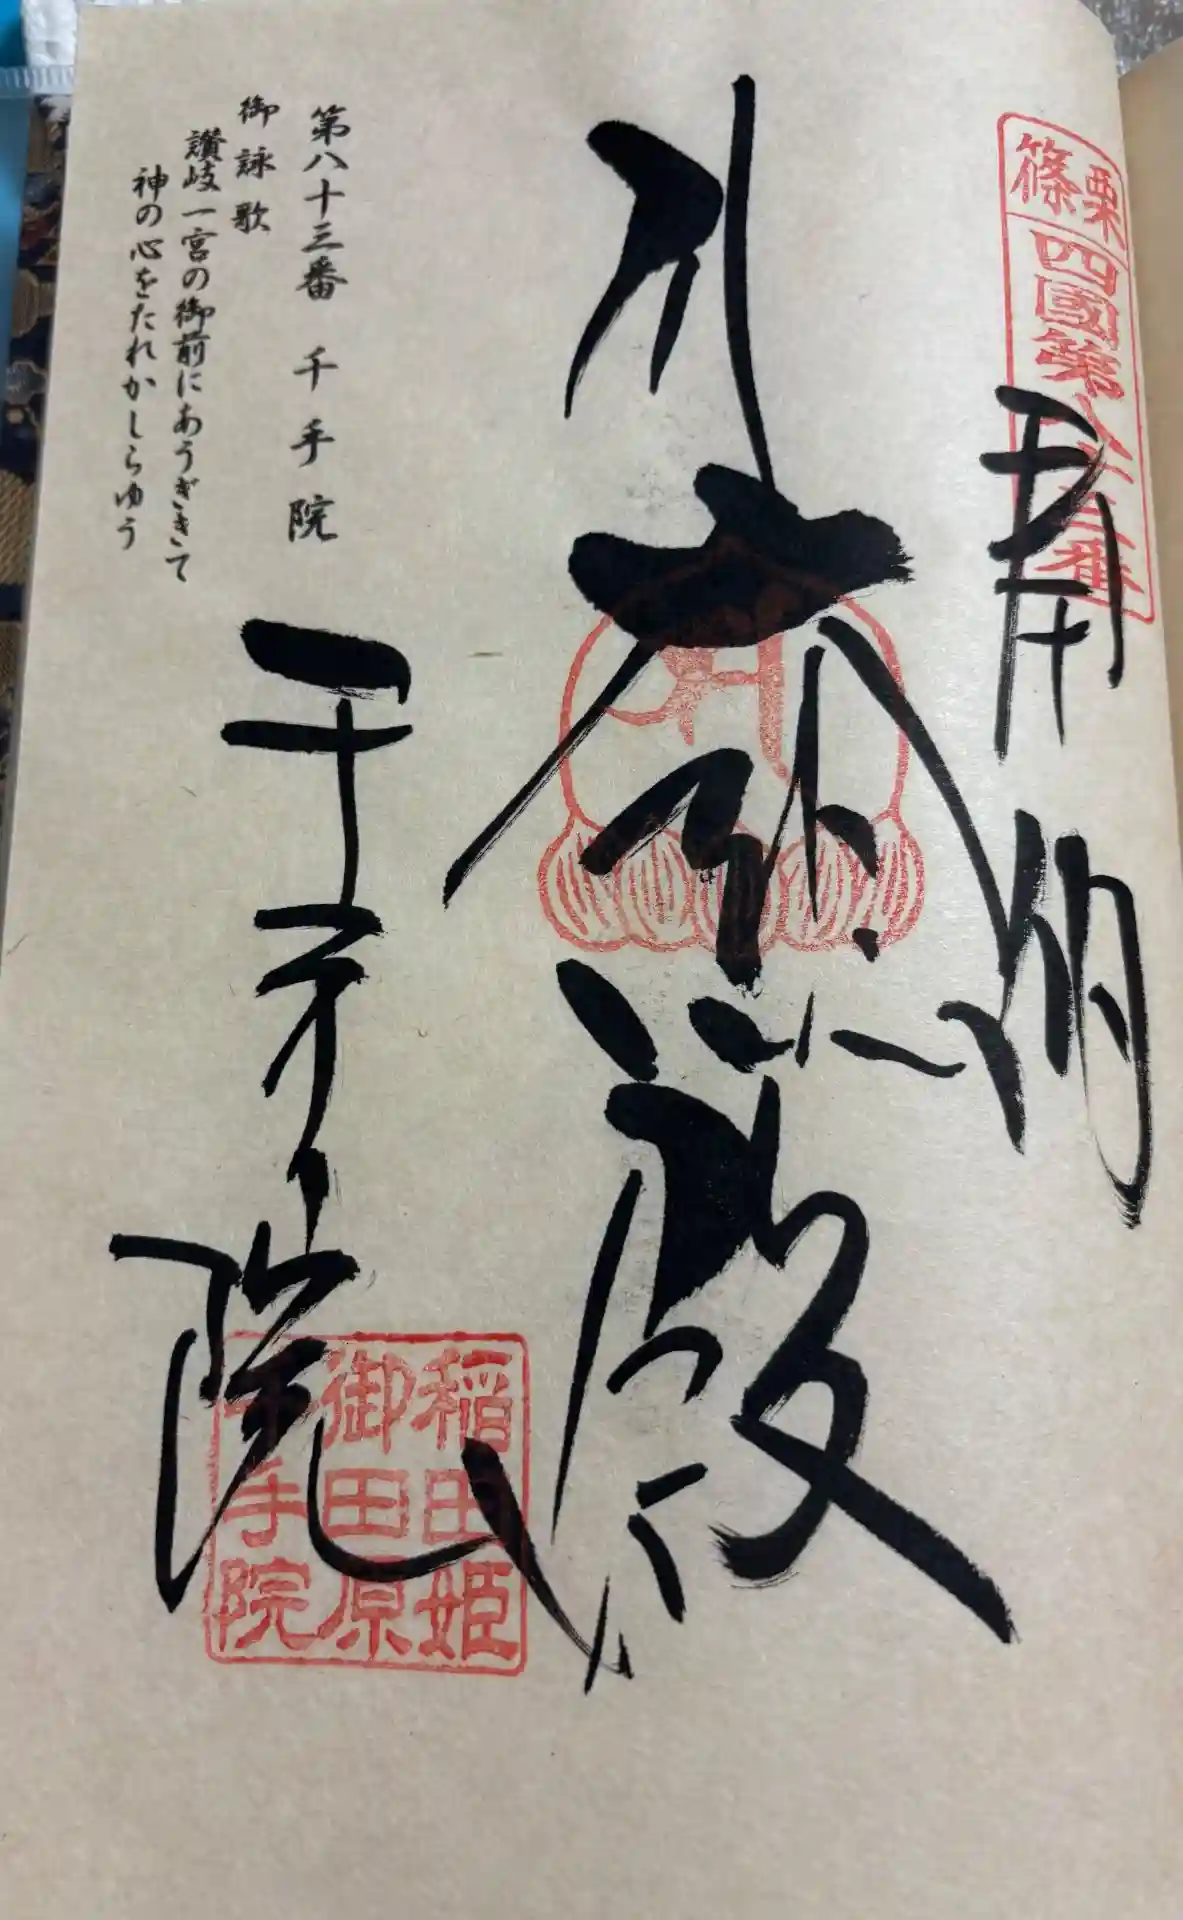 篠栗四國第八十三番
奉納
大悲殿
第八十三番 千手院
御詠歌
讚岐一宮の御前にあうぎきて
神の心をたれかしらゆう
千手院
稲田姫
御田原
千手院